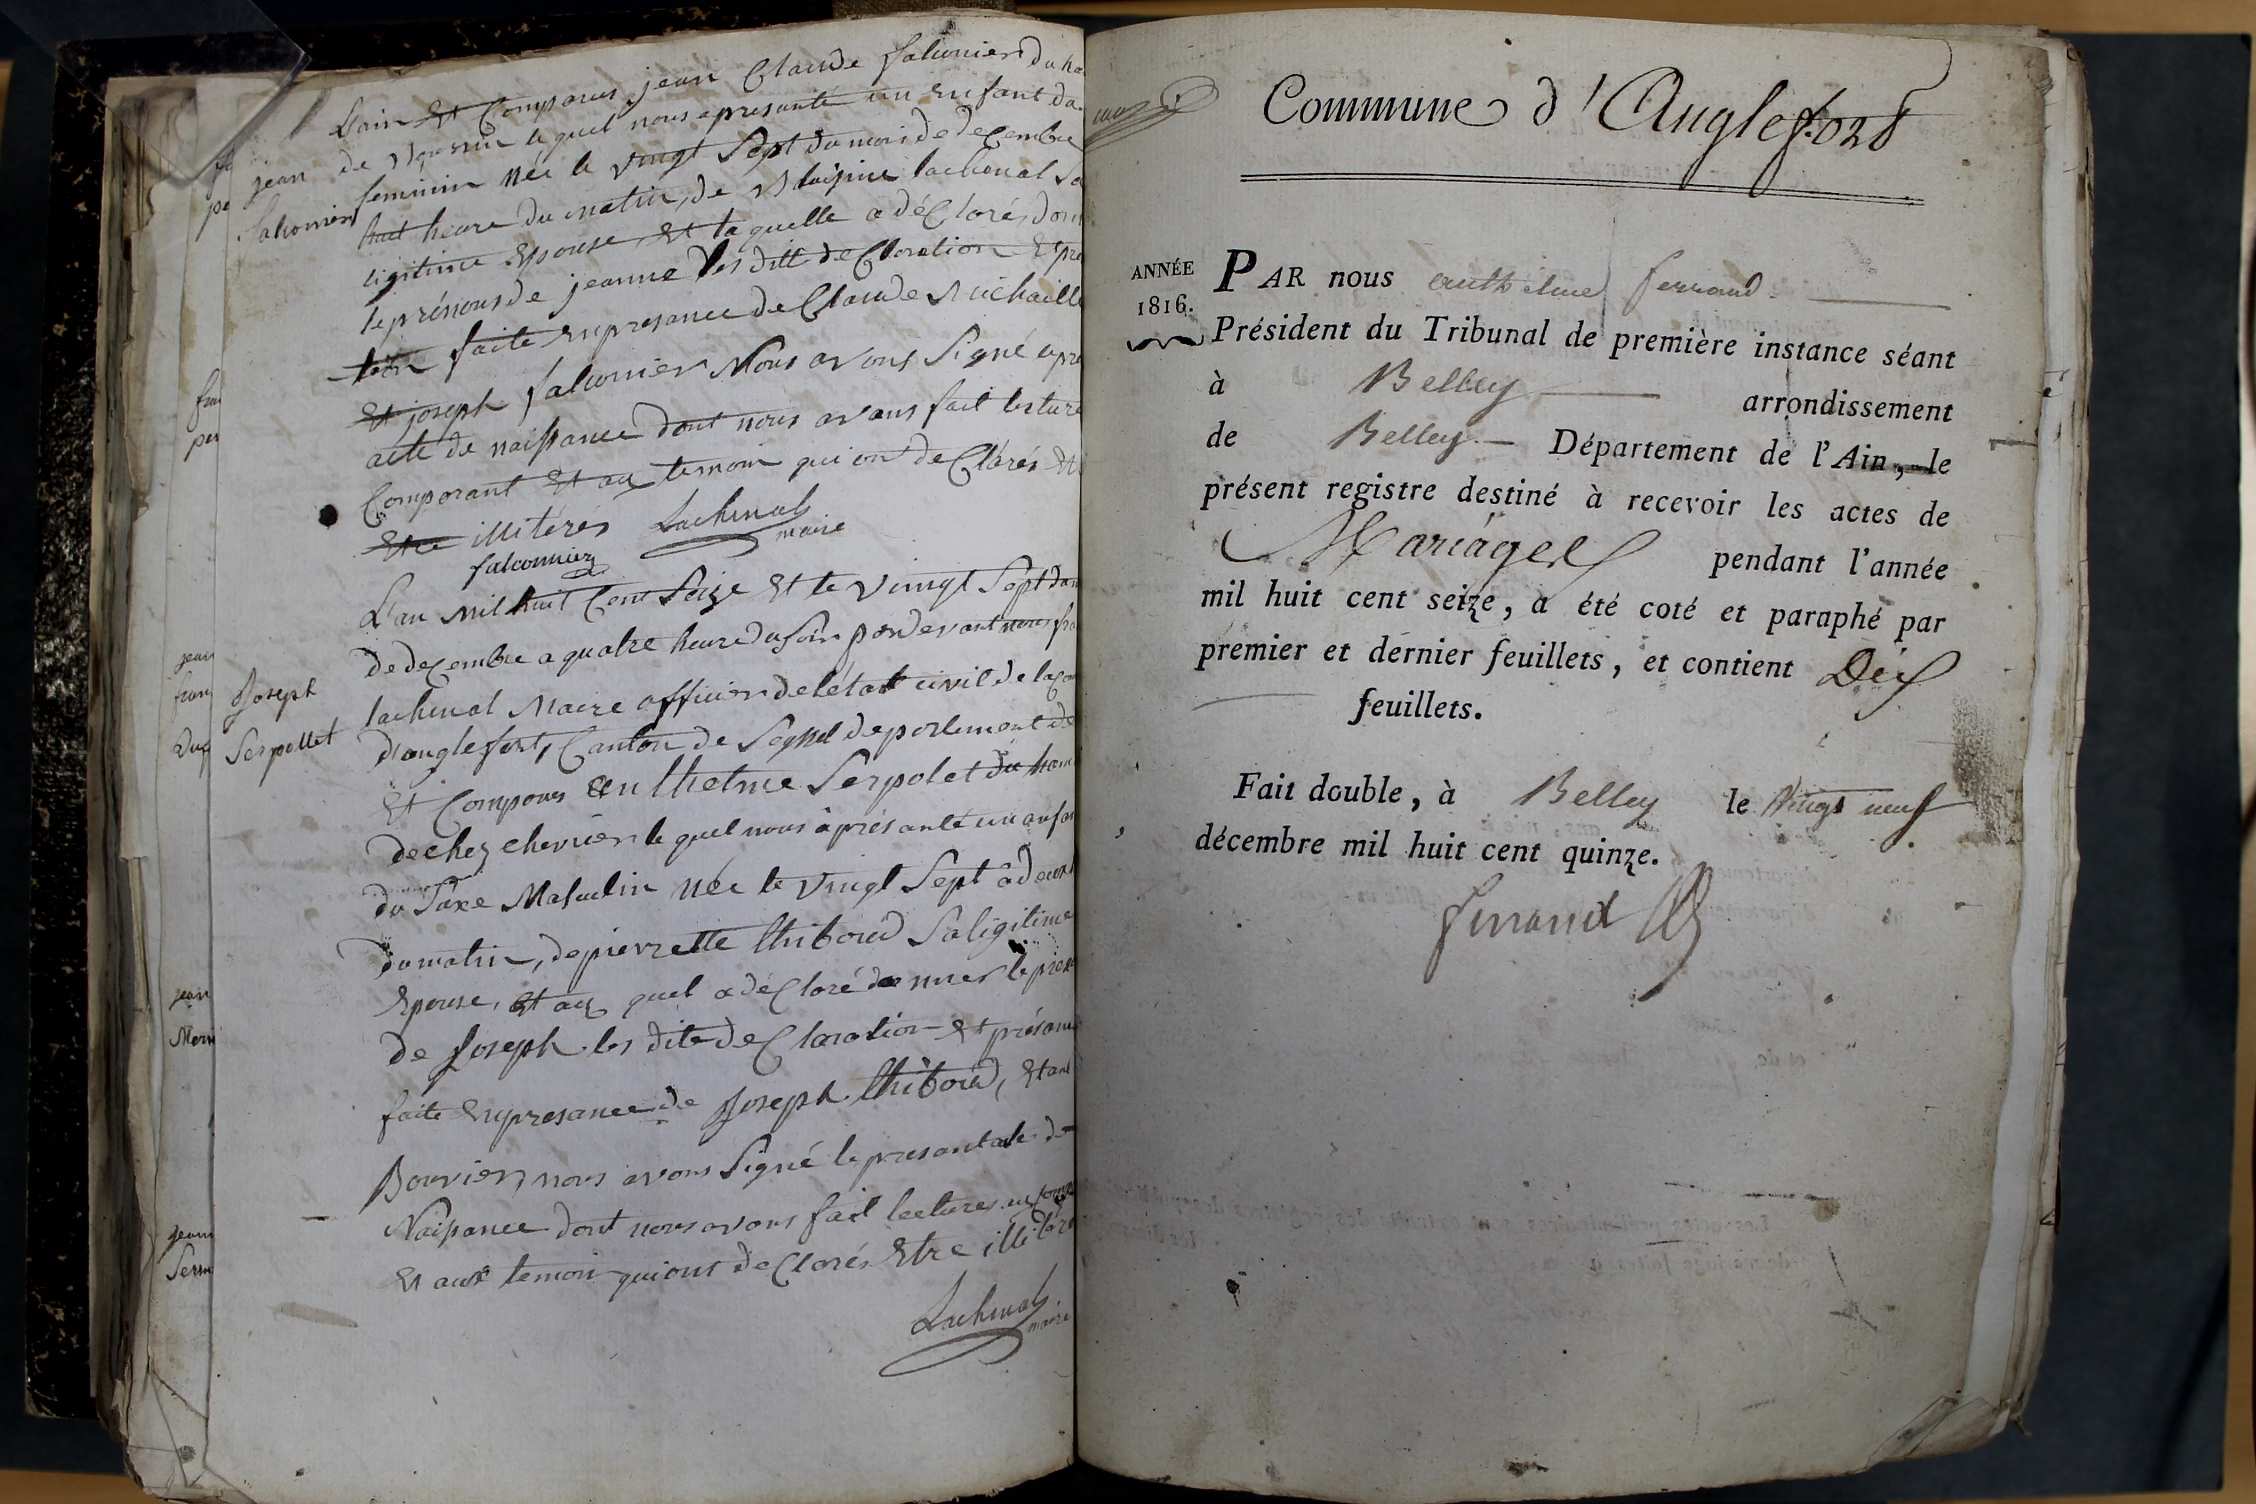 Lain et Comparus jean Claude falconier du ha
de lequel nous apresanté un enfant du
feminin née le vingt Sept du mois de decembre
huit heure du matin, de lachenal Sa
ligitime Epouse, et laquelle a déClarés don
le prénous de jeanne les ditt deClaration Et pre
faite en presance de Claude Michaille
Et joseph falconier Nous avons Signé apre
acte de naissance dont nous avons fait lecture
Comparant Et au temoin qui on deClarés Et
Etre illiterés Lachenal
maire
falconnier
jean
falconier
L'an mil huit Cent Seize Et le vingt Sept du
de decembre a quatre heure du soir par devant nous fra
lachenal Maire officier de létat civil de la com
d'anglefort, Canton de Seyssel departement de
Et Comparus Anthelme Serpolet du ham
de chez chevrier lequel nous à présanté un anfan
du Saxe Masculin née le vingt Sept à deux h
du matin, de pierrette thiboud Saligitime
Epouse, et au quel a déClaré donner le preno
de Joseph les dite deClaration et présan
faite en presance de Joseph thiboud, Et ant
Bouvier, nous avons Signé le presant acte de
Naissance dont nous avons fait lectures au comp
Et aux temoin qui ont deClarés Etre illitéré
Lachenal
maire
Joseph
Serpollet
jean
fran
Duf
jean
jeann
Commune d'Anglefort
ANNÉE
1816.
PAR nous anthelme ferrand
Président du Tribunal de première instance séant
à Belley arrondissement
de Belley Département de l'Ain, le
présent registre destiné à recevoir les actes de
Mariages pendant l'année
mil huit cent seize, a été coté et paraphé par
premier et dernier feuillets, et contient Dix
feuillets.
Fait double, à Belley le vingt neuf
décembre mil huit cent quinze.
ferrand